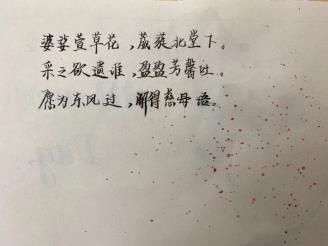 婆娑萱草花，葳蕤北堂下。
采之欲遗谁，盈盈芳馨吐。
愿为东风过，解得慈母语。